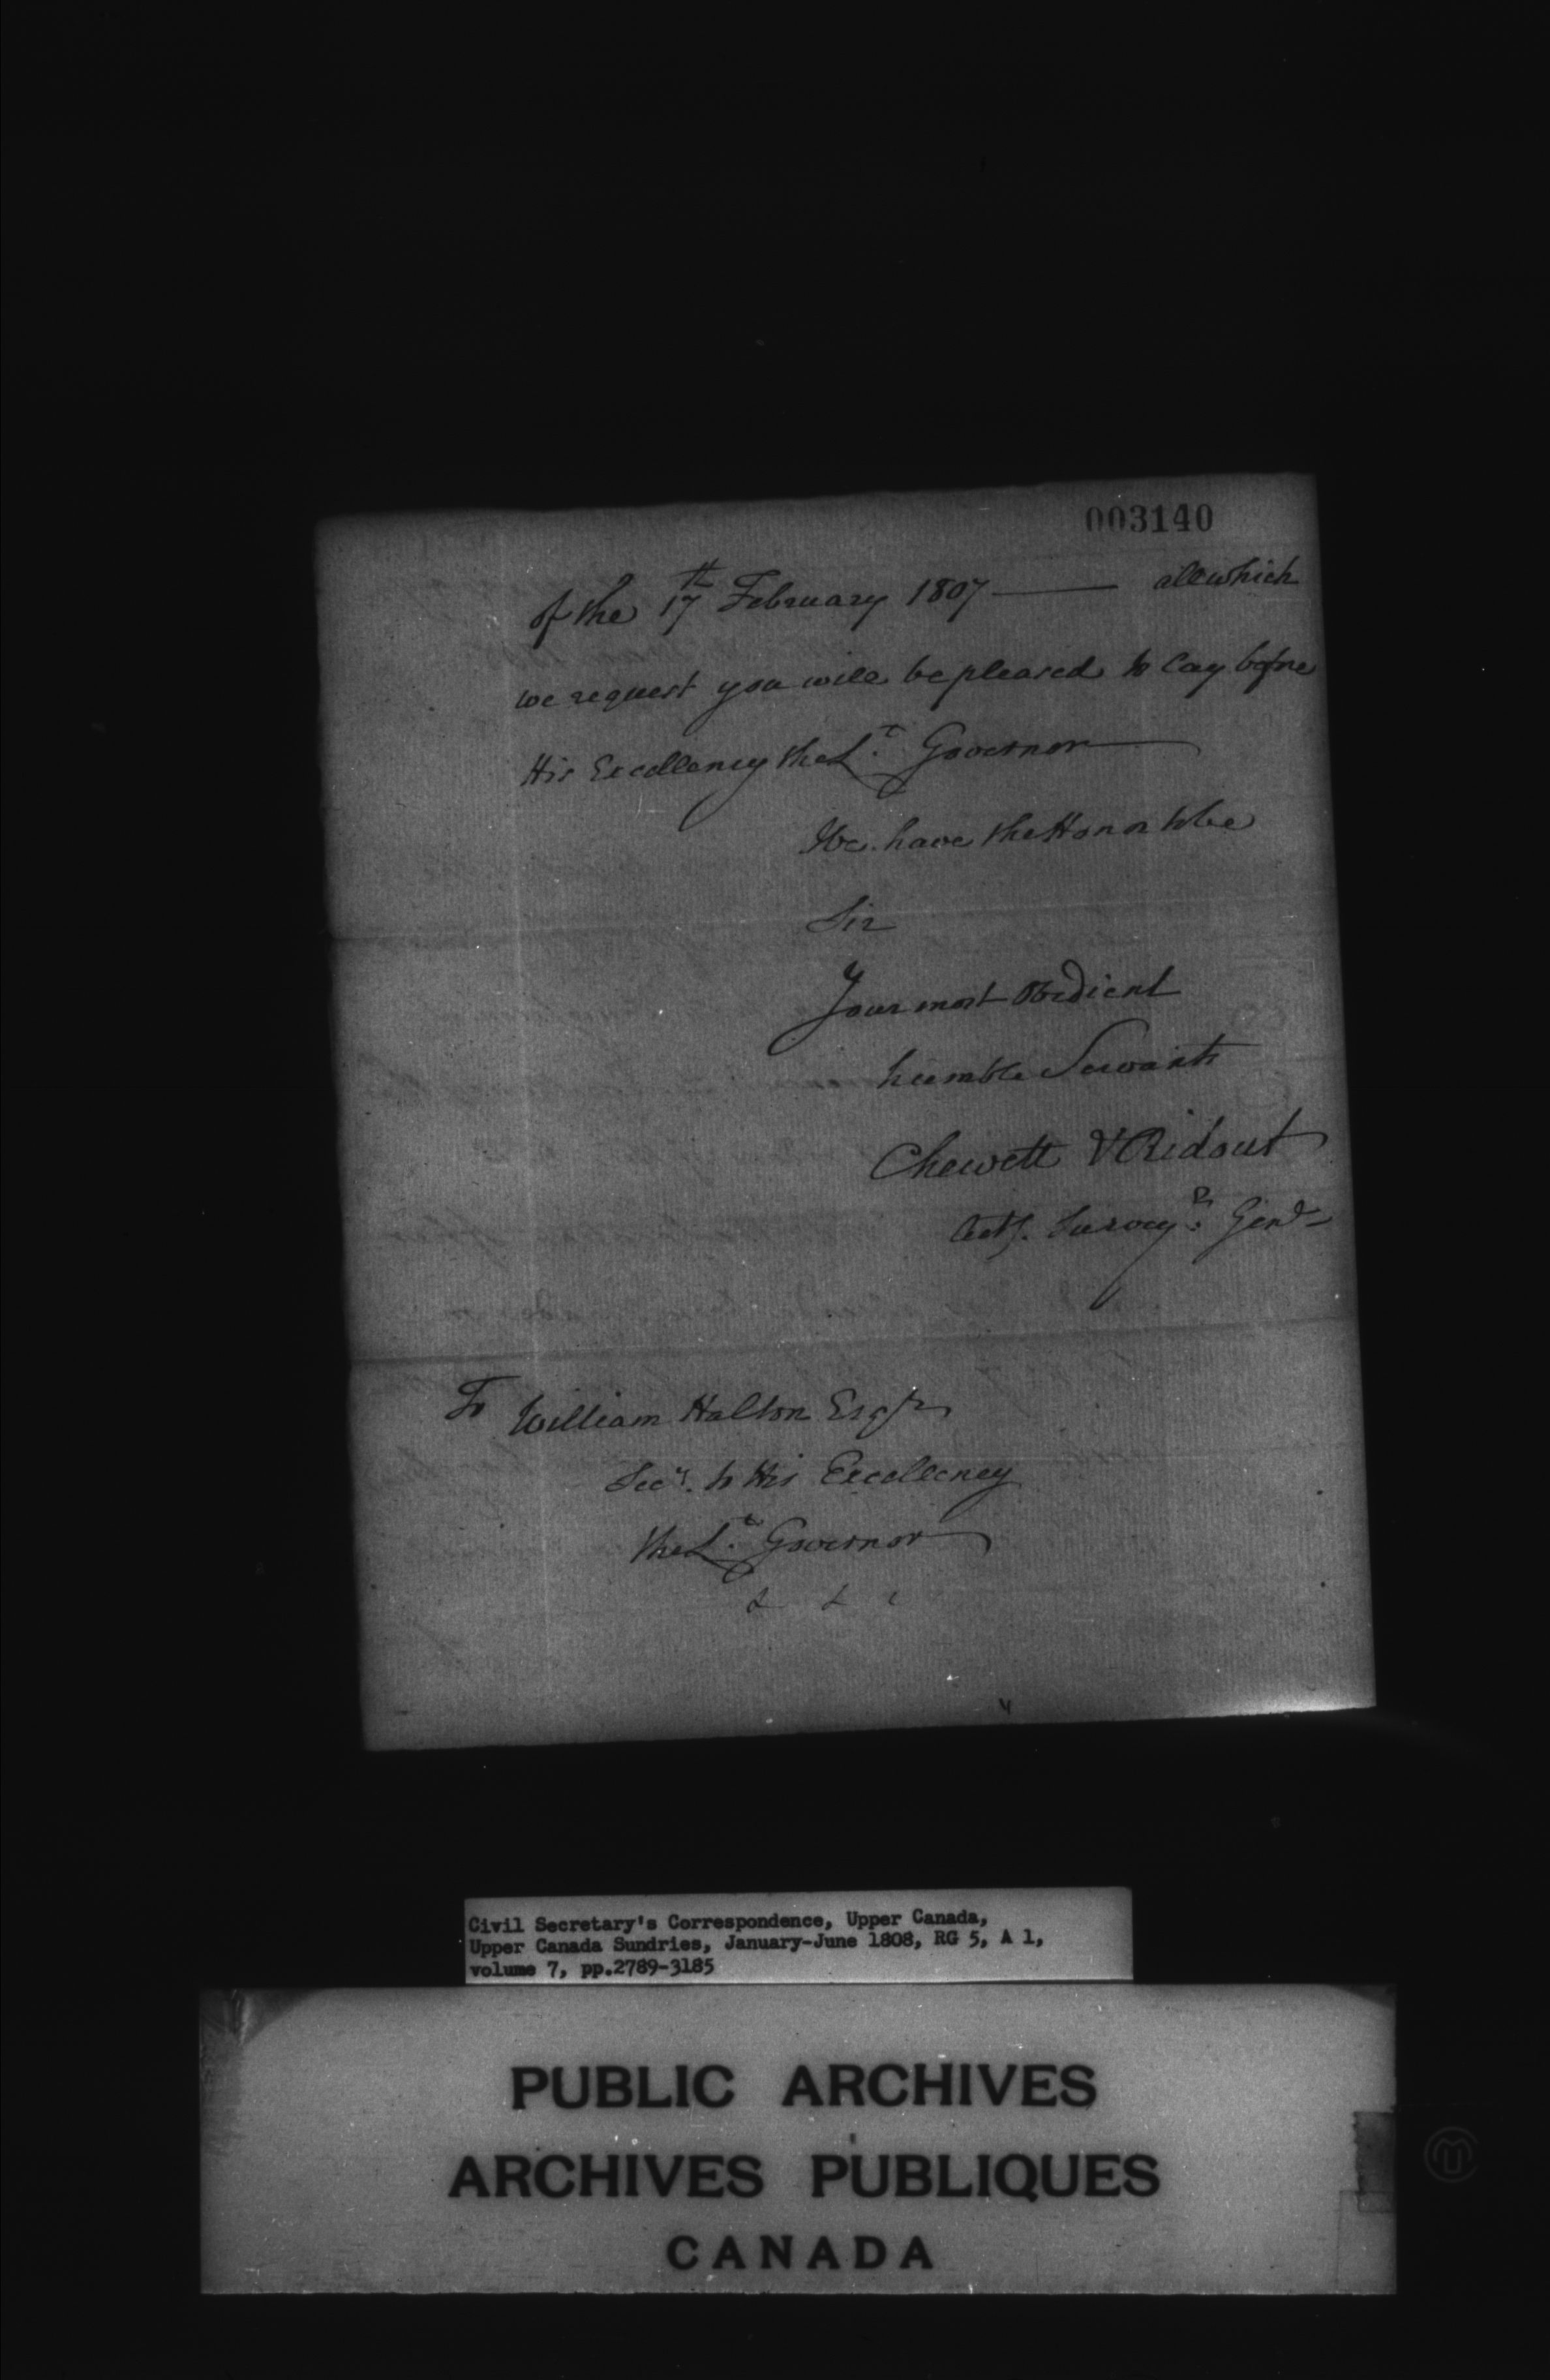 003140
of the 17th February 1807 —— all which
we request you will be pleased to lay before
His Excellency the Lt. Governor
We have the Honor to be
Sir
Your most Obedient
humble Servants
Chewett & Ridout
Actg. Surveyrs. Genl.
To William Halton Esqr.
Secy. to His Excellency
the Lt. Governor
& & c
Civil Secretary's Correspondence, Upper Canada,
Upper Canada Sundries, January-June 1808, RG 5, A 1,
volume 7, pp.2789-3185
PUBLIC ARCHIVES
ARCHIVES PUBLIQUES
CANADA